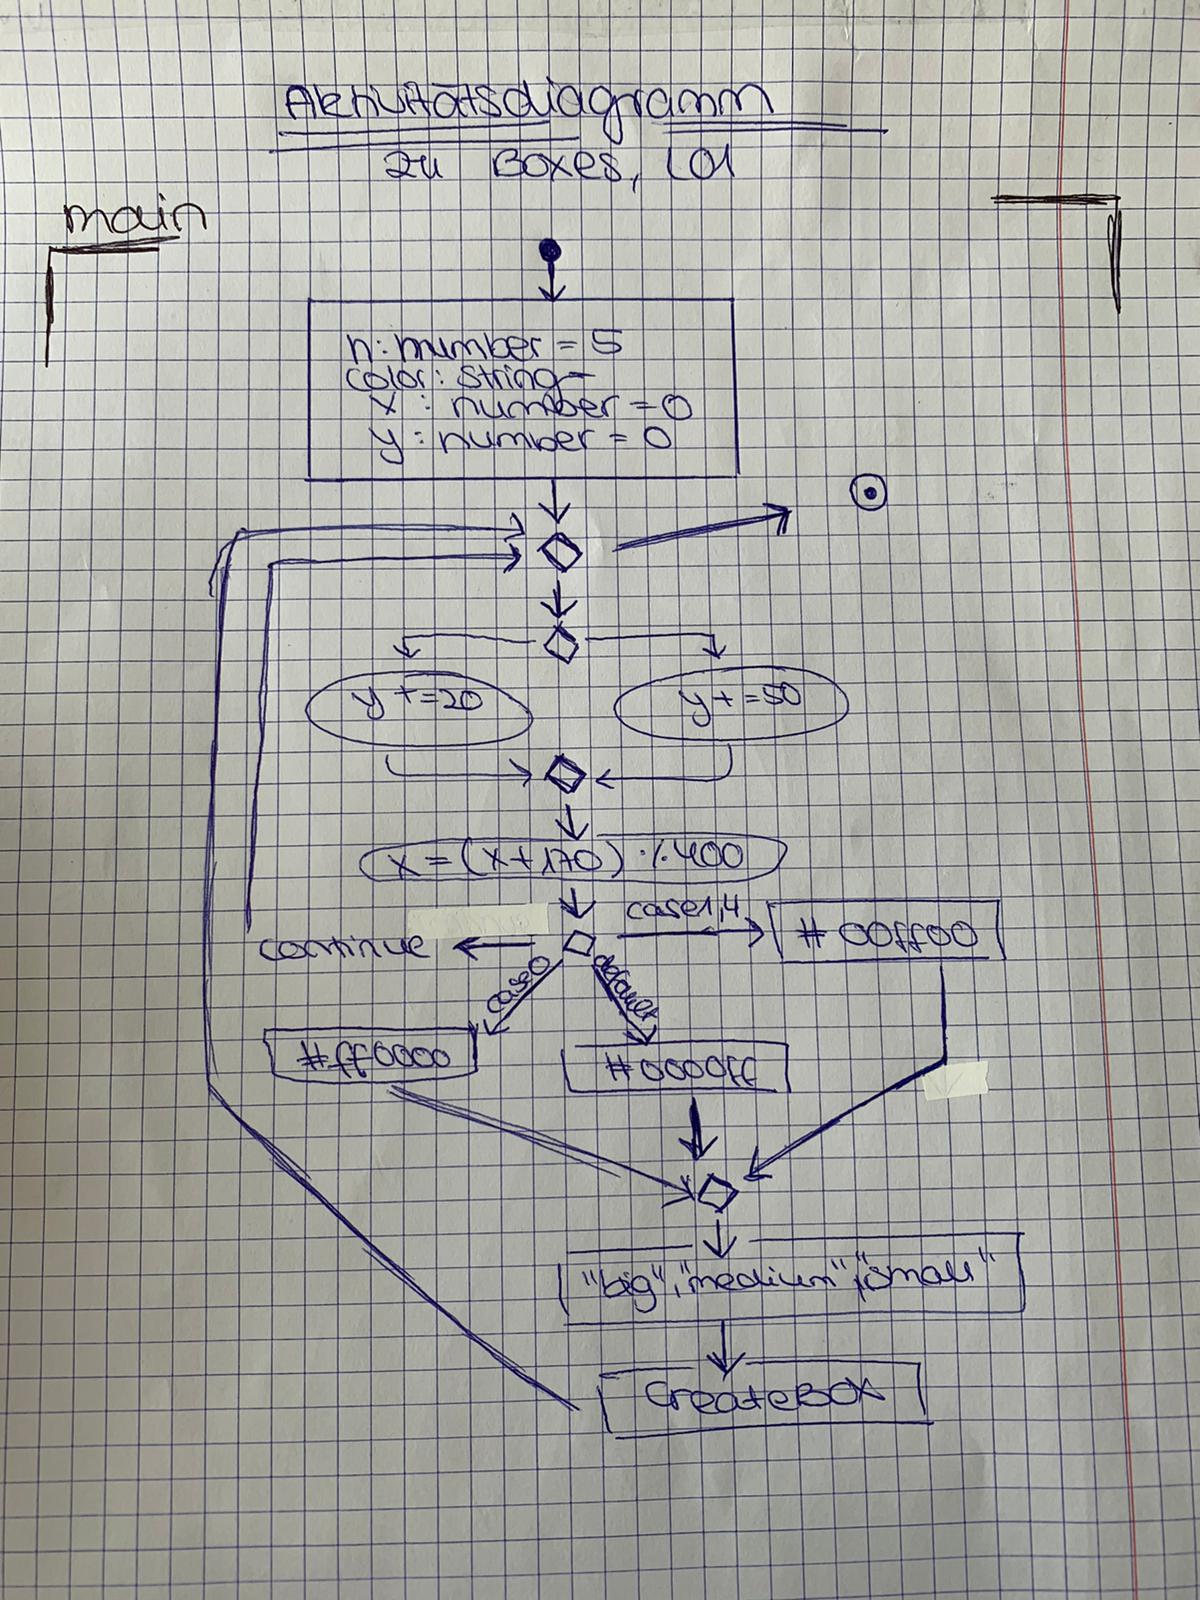 Aktivitätsdiagramm
zu Boxes, L01
main
n: number = 5
color: string
x : number = 0
y : number = 0
y += 20
y += 50
x = (x+170) % 400
continue
case 1,4
#00ff00
case 0
default
#ff0000
#0000ff
"big", "medium", "small"
CreateBOX